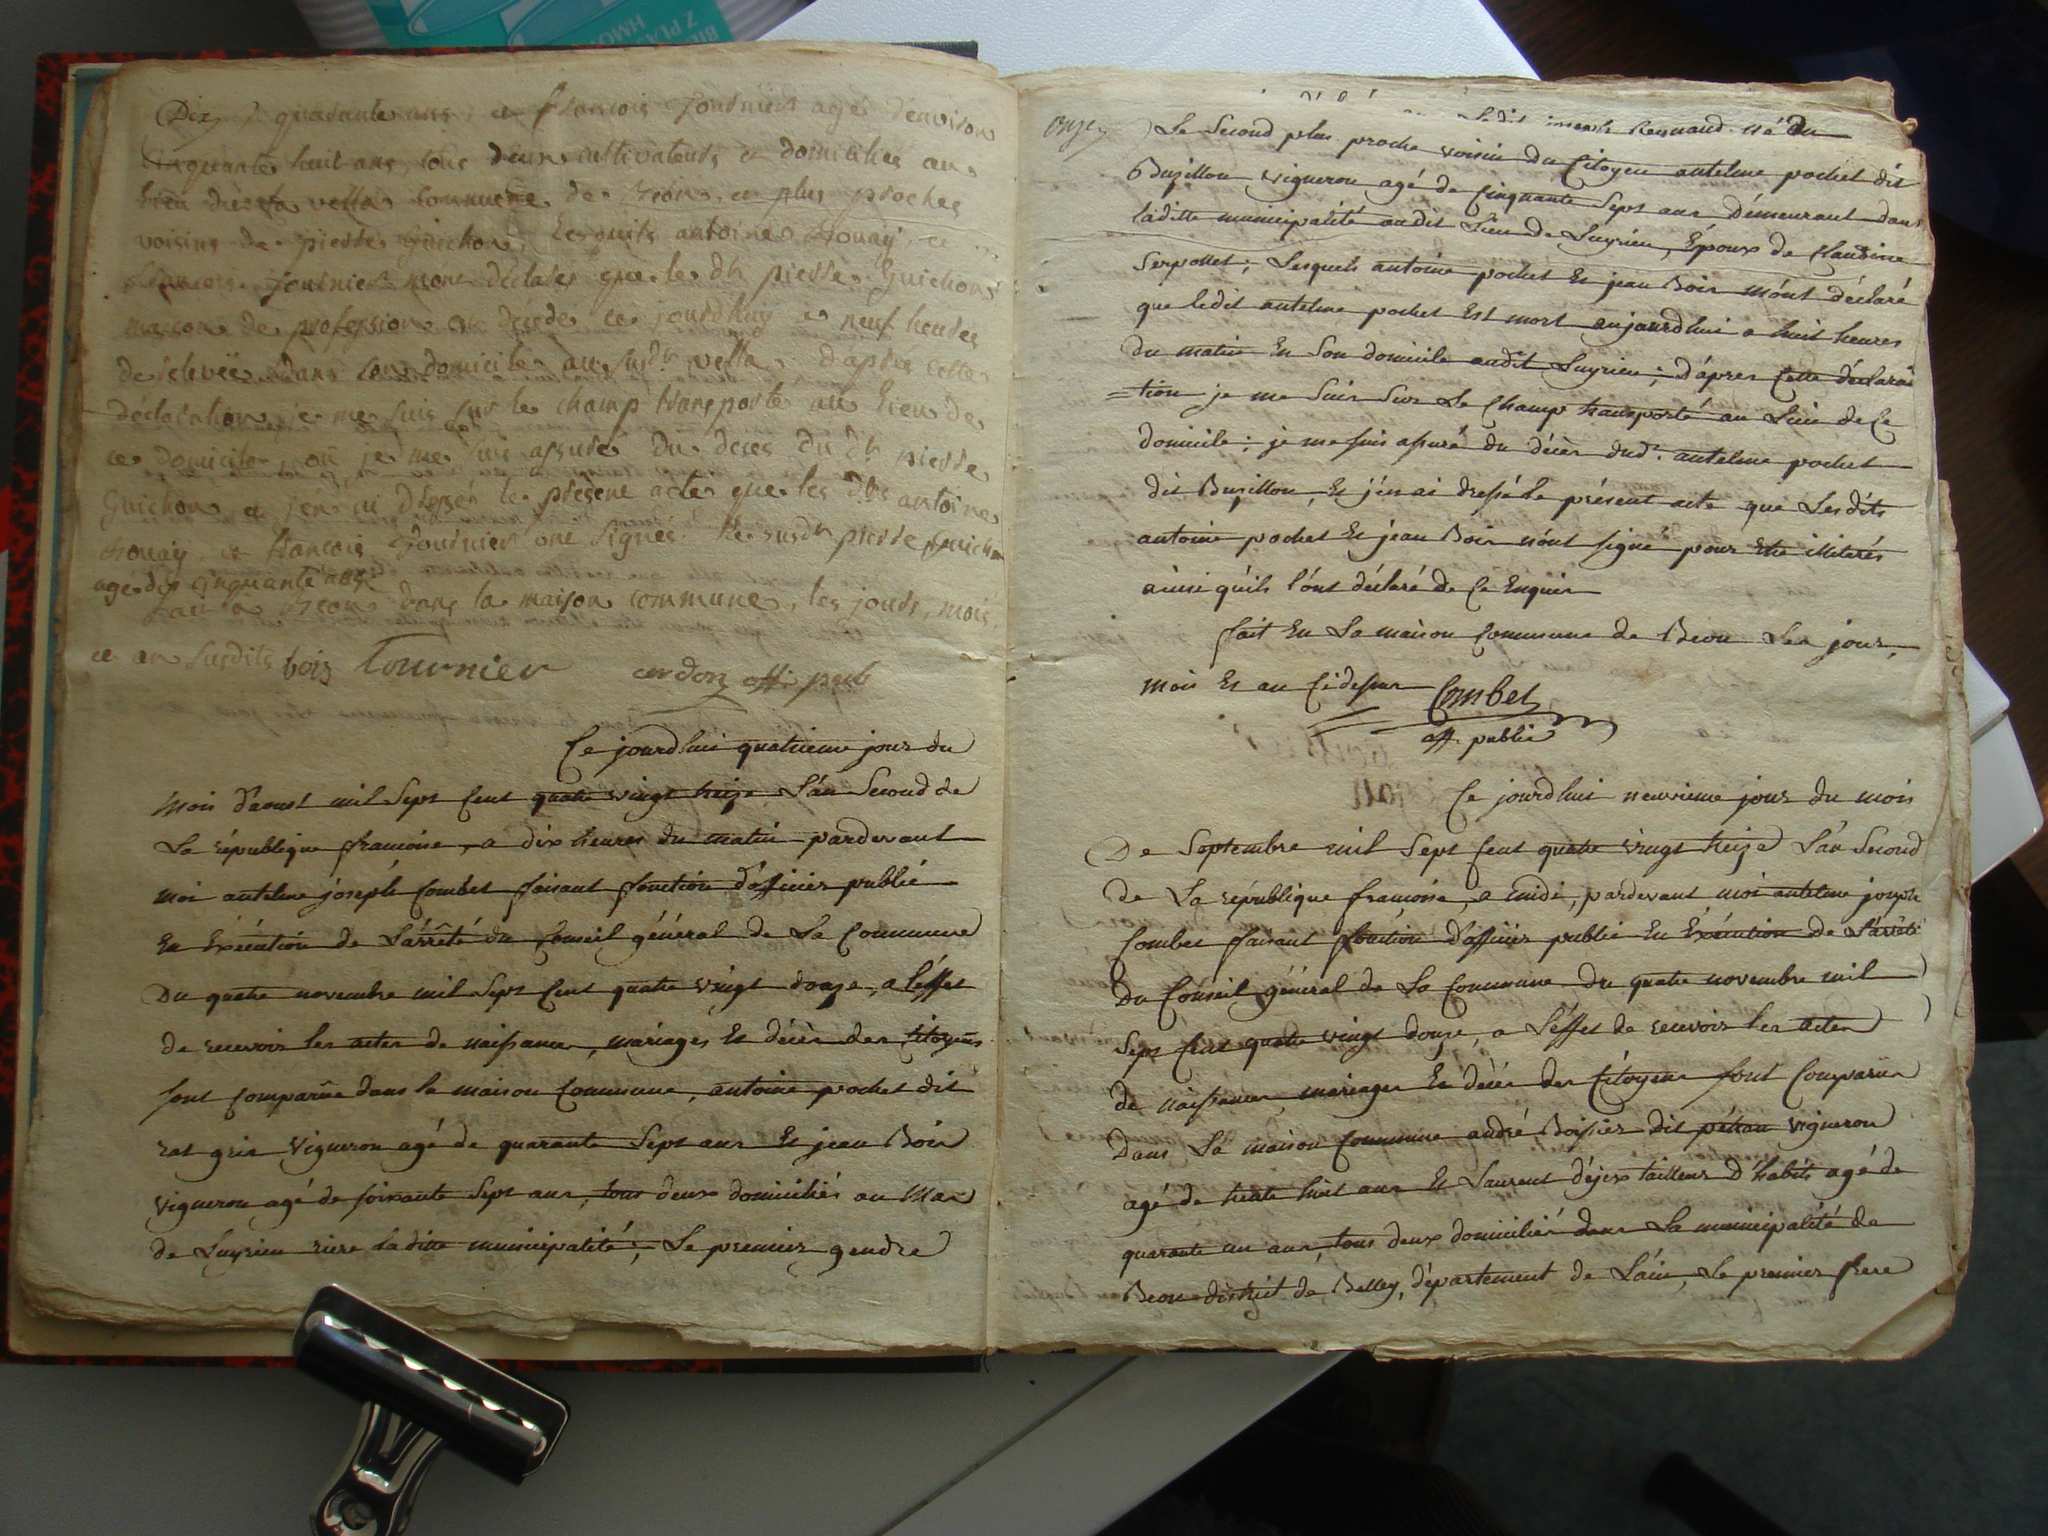 Dix quarante ans, et francois fournier agés d'environ
cinquante huit ans, tous deux cultivateurs et domiciliés au
lieu de vella commune de Béon, et plus proches
voisins de pierre Guichon, Lesquels antoine et
francois fournier mont declarés que le dt pierre Guichon
macon de profession est decede ce jourdhuy a neuf heures
de relevée dans son domicile au susdt vella, d'apres cette
déclaration je me suis sur le champ transporté au lieu de
ce domicile, ou je me suis assuré du deces du dt pierre
Guichon, et j'en ai dressé le présent acte que les dts antoine
et francois fournier ont signés. Le susdt pierre guichon
age de cinquante ans
fait a béon dans la maison commune, les jours, mois,
et an susdits bois tournier cardon offi. pub
Ce jourdhui quatrieme jour du
mois d'aoust mil sept cent quatre vingt treize L'an Second de
La république francoise, a dix heures du matin pardevant
moi antelme joseph Combet faisant fonction d'officier public
En Exécution de L'arrêté du Conseil général de La Commune
Du quatre novembre mil Sept Cent quatre vingt douze, a L'effet
de recevoir les actes de naissances, mariages Et décès des Citoyens
sont Comparûs dans la maison Commune, antoine pochet dit
ras gris Vigneron agé de quarante Sept ans Et jean Bois
vigneron agé de soixante Sept ans, tous deux domiciliés au Mas
de Luyrieu riere Laditte municipalité; Le premier gendre
onze
Ledit joseph Reynaud né du
Le Second plus proche voisin du Citoyen antelme pochet dit
Buzillon vigneron agé de Cinquante Sept ans démeurant dans
Laditte municipalité audit Lieu de Luyrieu, Époux de Claudine
Serpollet; Lesquels antoine pochet Et jean Bois m'ont déclaré
que ledit antelme pochet Est mort aujourdhui a huit heures
du matin En Son domicile audit Luyrieu; D'apres Cette déclara
=tion je me Suis Sur Le Champ transporté au Lieu de Ce
domicile; je me suis assuré du décès dud.t antelme pochet
dit Buzillon, Et j'en ai dressé le présent acte que Lesdits
antoine pochet Et jean Bois n'ont signé pour Etre illiterés
ainsi qu'ils l'ont déclaré de Ce Enquis
fait En La maison Commune de Beon Les jour,
mois Et an Cidessus Combet
off. public
Ce jourdhui neuvieme jour du mois
De Septembre mil Sept Cent quatre vingt treize L'an Second
de La république francoise, a midi, pardevant moi antelme joseph
Combet faisant fonction d'officier public En Exécution de L'arrêté
Du Conseil général de La Commune du quatre novembre mil
Sept Cent quatre vingt douze, a L'éffet de recevoir les actes
de naissances, mariages Et décès des Citoyens sont Comparûs
Dans La maison Commune andré Boissier dit pétion vigneron
agé de trente huit ans Et Laurent Déjex tailleur D'habits agé de
quarante un ans, tous deux domiciliés dans La municipalité de
Beon district de Belley, département de L'ain, Le premier frere